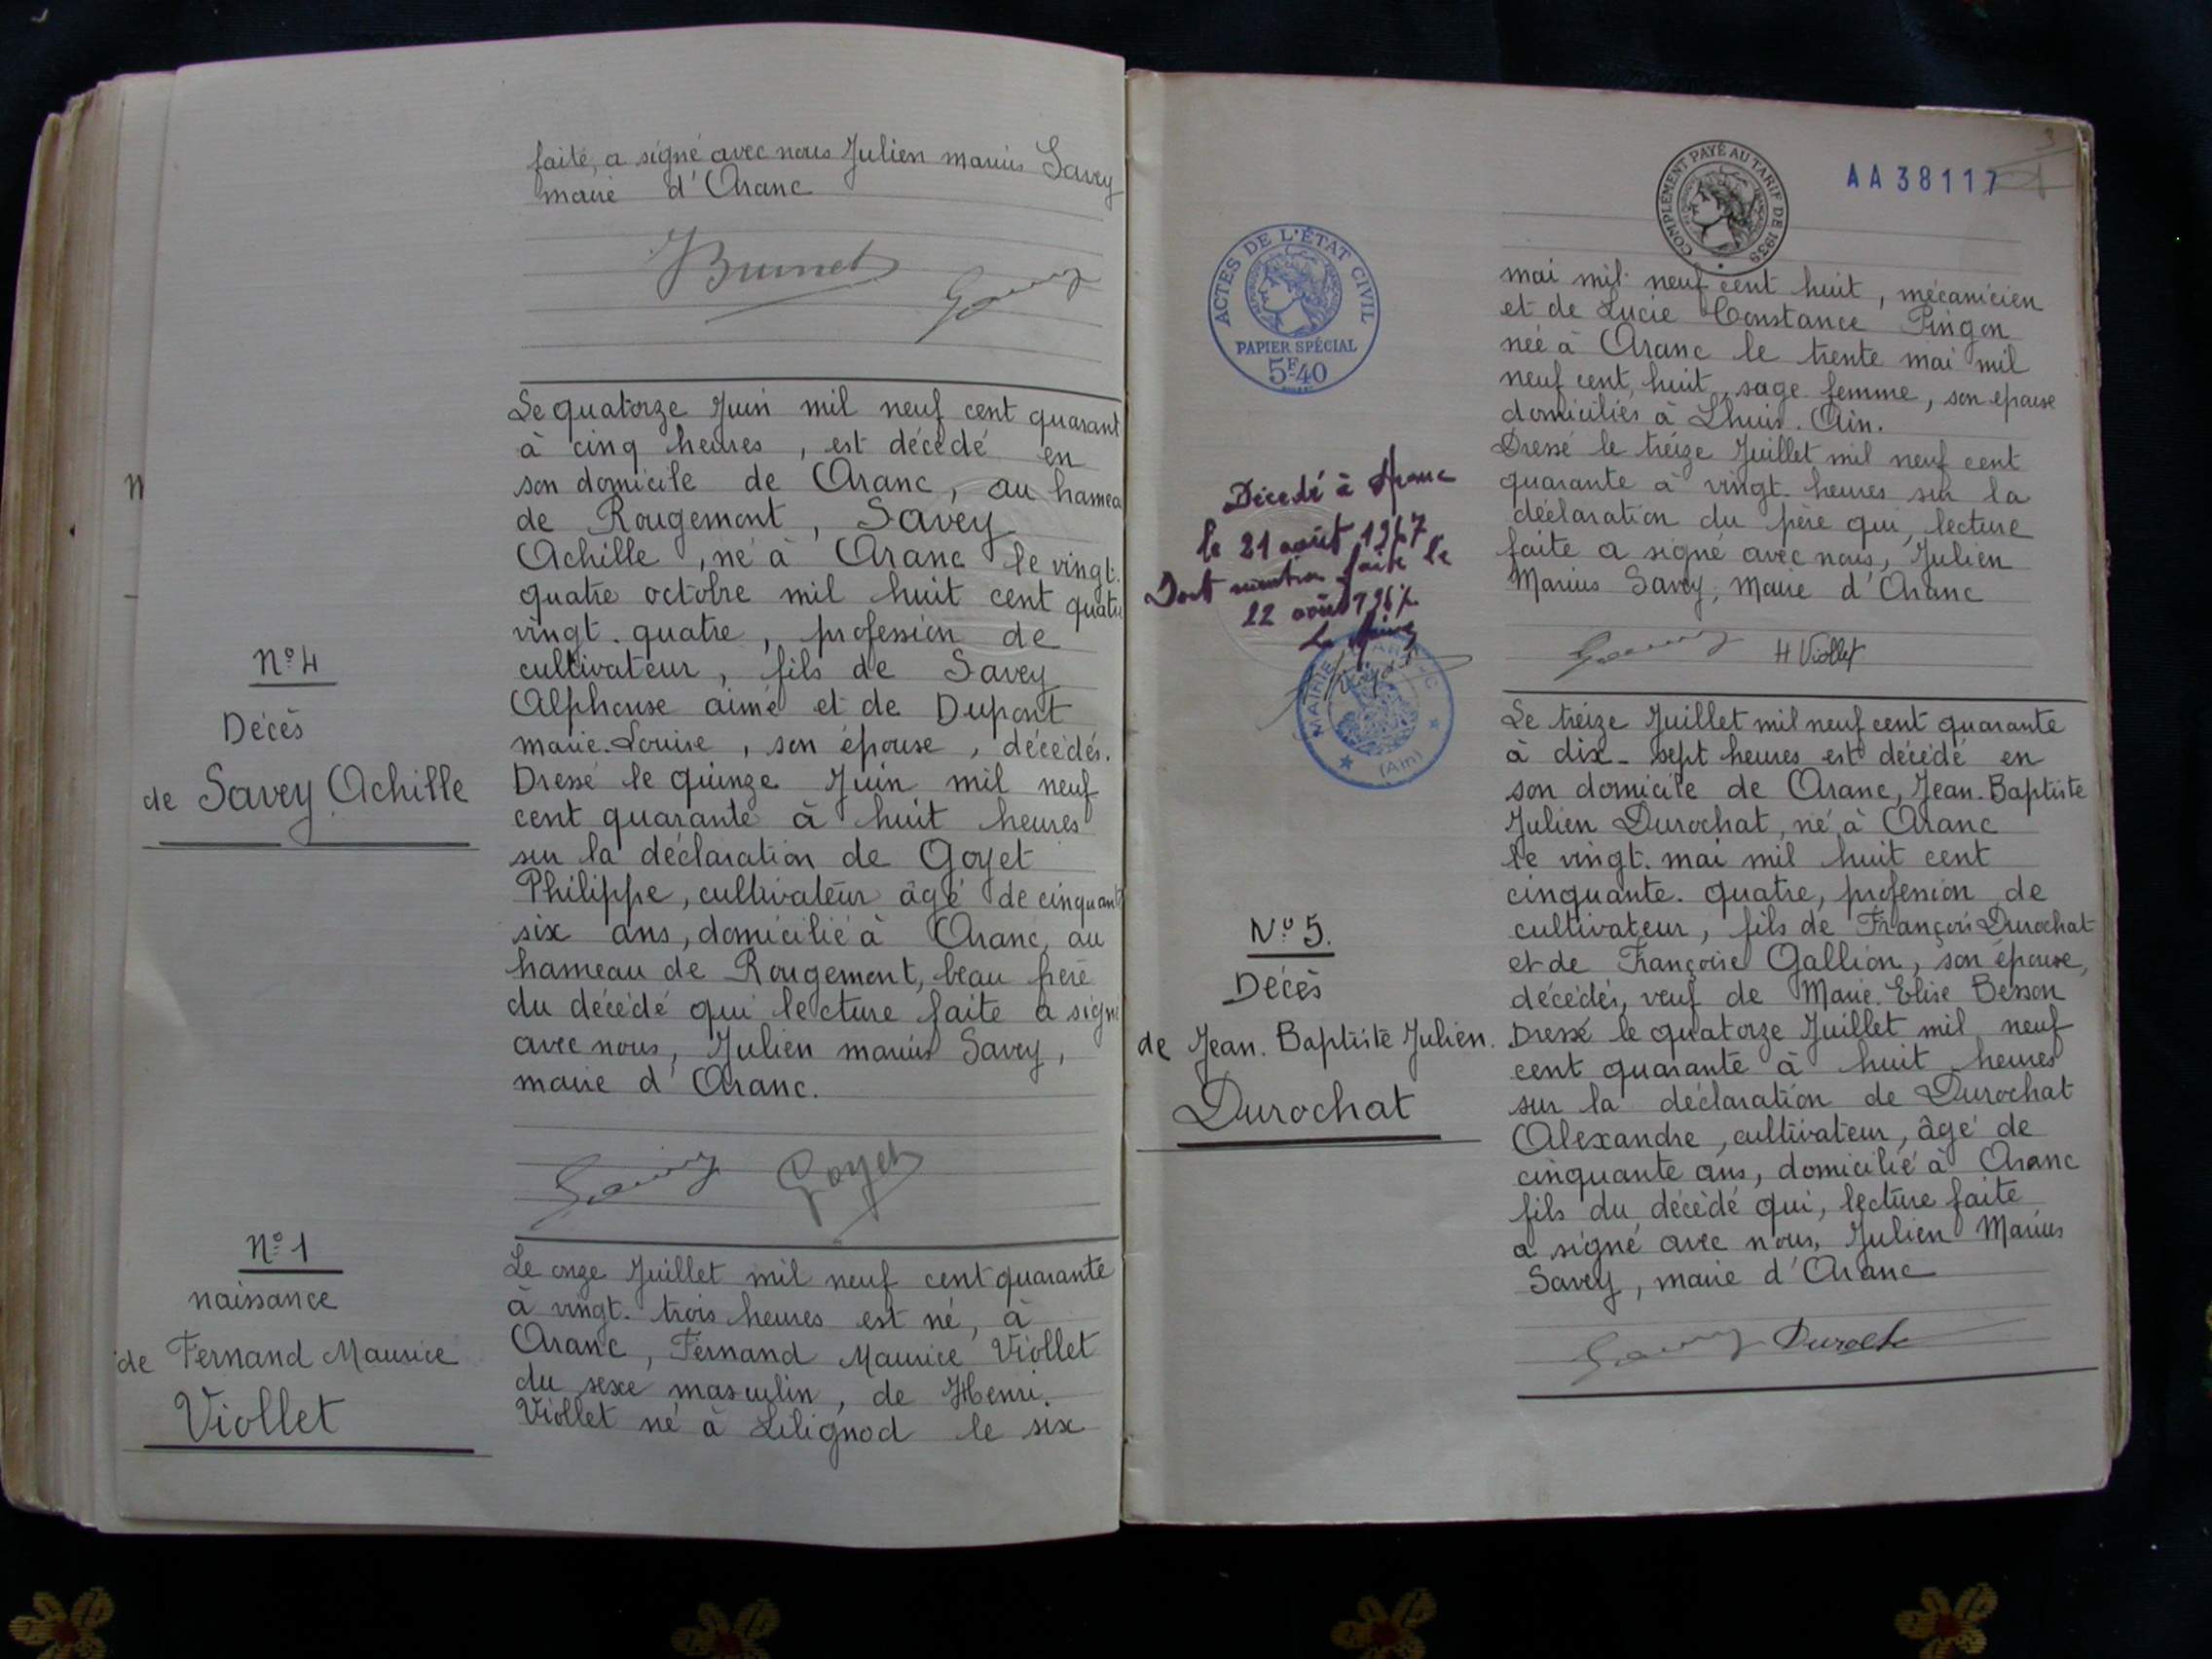 faite, a signé avec nous Julien marius Savey
maire d'Aranc
Brunet
Savey
N°4
Décès
de Savey Achille
Le quatorze Juin mil neuf cent quarant
à cinq heures, est décédé en
son domicile de Aranc, au hamea
de Rougemont, Savey
Achille, né à Aranc le vingt.
quatre octobre mil huit cent quatre
vingt. quatre, profession de
cultivateur, fils de Savey
Alphonse aimé et de Dupont
marie. Louise, son épouse, décédés.
Dressé le quinze Juin mil neuf
cent quarante à huit heures
sur la déclaration de Goyet
Philippe, cultivateur âgé de cinquant
six ans, domicilié à Aranc, au
hameau de Rougemont, beau frère
du décédé qui lecture faite a signé
avec nous, Julien marius Savey,
maire d'Aranc.
Savey Goyet
N°1
naissance
de Fernand Maurice
Viollet
Le onze Juillet mil neuf cent quarante
à vingt. trois heures est né, à
Aranc, Fernand Maurice Viollet
du sexe masculin, de Henri.
Viollet né à Lilignod le six
COMPLÉMENT PAYÉ AU TARIF DE 1939
AA38117
3
ACTES DE L'ÉTAT CIVIL
PAPIER SPÉCIAL
5F40
mai mil neuf cent huit, mécanicien
et de Lucie Constance Pingon
née à Aranc le trente mai mil
neuf cent, huit, sage femme, son epouse
domiciliés à Lhuis. Ain.
Dressé le treize Juillet mil neuf cent
quarante à vingt. heures sur la
déclaration du père qui, lecture
faite a signé avec nous, Julien
Marius Savey, Maire d'Aranc
Savey H Viollet
Décédé à Aranc
le 21 août 1967
Dont mention faite le
22 août 1967
Le Maire
MAIRIE D'ARANC
(Ain)
N° 5.
Décès
de Jean. Baptiste Julien.
Durochat
Le treize Juillet mil neuf cent quarante
à dix-sept heures est décédé en
son domicile de Aranc, Jean. Baptiste
Julien Durochat, né à Aranc
le vingt. mai mil huit cent
cinquante. quatre, profession de
cultivateur, fils de François Durochat
et de Françoise Gallion, son épouse,
décédés, veuf de Marie. Elise Besson
Dressé le quatorze Juillet mil neuf
cent quarante à huit heures
sur la déclaration de Durochat
Alexandre, cultivateur, âgé de
cinquante ans, domicilié à Aranc
fils du décédé qui, lecture faite
a signé avec nous, Julien Marius
Savey, maire d'Aranc
Savey